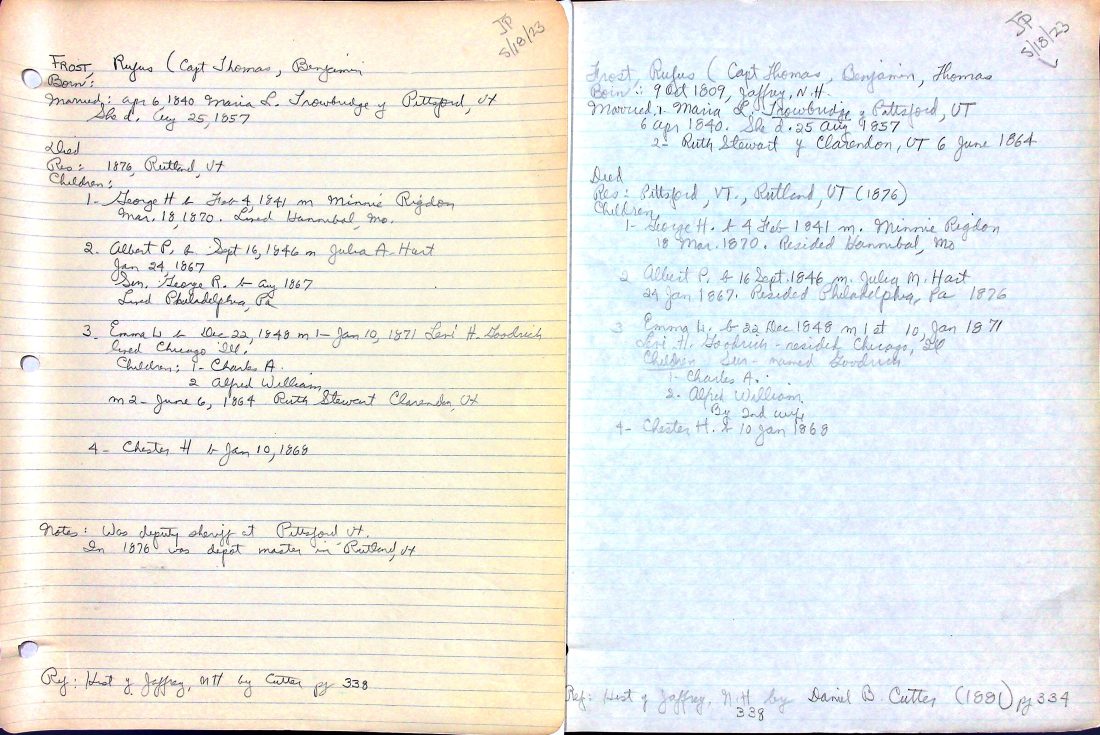 JP
5/18/23
FROST, Rufus (Capt Thomas, Benjamin
Born:
Married: Apr 6, 1840 Maria L. Trowbridge of Pittsford, Vt
She d. Aug 25, 1857
Died
Res: 1876, Rutland, Vt
Children:
1- George H b Feb 4, 1841 m Minnie Rigdon
Mar. 18, 1870. Lived Hannibal, Mo.
2. Albert P. b. Sept 16, 1846 m Julia A. Hart
Jan 24, 1867
Son, George R. b Aug 1867
Lived Philadelphia, Pa
3. Emma W b Dec 22, 1848 m 1- Jan 10, 1871 Levi H. Goodrich
lived Chicago Ill.
Children: 1- Charles A.
2 Alfred William
m 2- June 6, 1864 Ruth Stewart Clarendon, Vt
4- Chester H b Jan 10, 1868
Notes: Was deputy sheriff at Pittsford Vt.
In 1876 was depot master in Rutland, Vt
Ref: Hist of Jaffrey, NH by Cutter pg 338
JP
5/18/23
Frost, Rufus (Capt Thomas, Benjamin, Thomas
Born: 9 Oct 1809, Jaffrey, N.H.
Married, 1- Maria L. Trowbridge of Pittsford, VT
6 Apr 1840. She d. 25 Aug 1857
2- Ruth Stewart of Clarendon, VT 6 June 1864
Died
Res: Pittsford, VT., Rutland, VT (1876)
Children
1- George H. b 4 Feb 1841 m. Minnie Rigdon
18 Mar. 1870. Resided Hannibal, Mo
2 Albert P. b 16 Sept. 1846 m. Julia M. Hart
24 Jan 1867. Resided Philadelphia, Pa 1876
3 Emma W. b 22 Dec 1848 m 1st 10, Jan 1871
Levi H. Goodrich - resided Chicago, Ill
Children Sur- named Goodrich
1- Charles A.
2. Alfred William
By 2nd wife
4- Chester H. b 10 Jan 1868
Ref: Hist of Jaffrey, N.H by Daniel B. Cutter (1881) pg 334
338